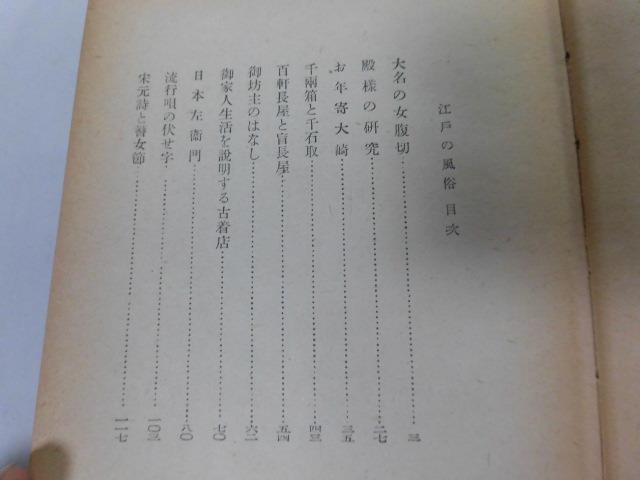 江戸の風俗 目次
大名の女腹切…………三
殿様の研究…………二七
お年寄大崎…………三五
千兩箱と千石取…………四三
百軒長屋と盲長屋…………五四
御坊主のはなし…………六二
御家人生活を說明する古着店…………七〇
日本左衞門…………八〇
流行唄の伏せ字…………一〇三
宋元詩と瞽女節…………一一七